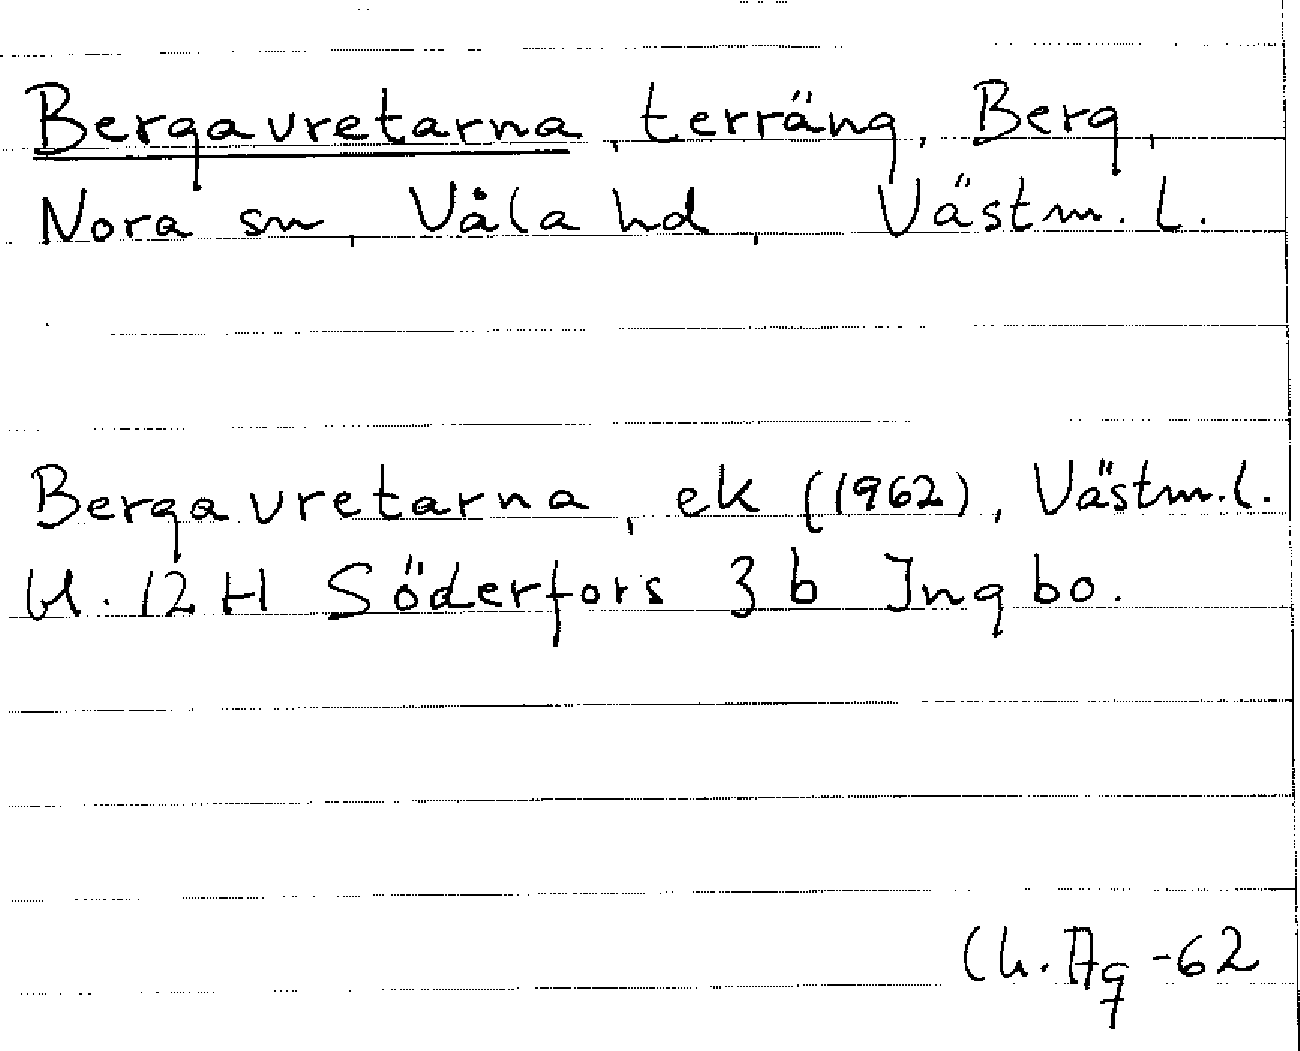 Bergavretarna, terräng, Berg,
Nora sn, Våla hd, Västm. l.
Bergavretarna, ek (1962), Västm. l.
bl. 12 H Söderfors 3 b Ingbo.
Ch. Ag -62